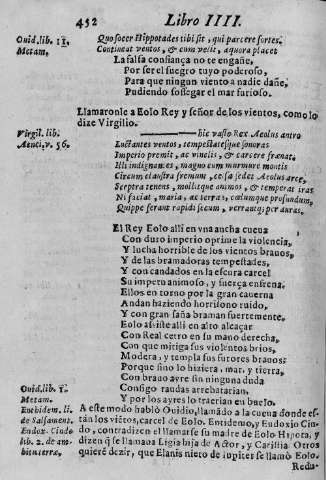 452 Libro IIII.
Ouid. lib. 11. Metam.
Quo socer Hippotades tibi sit, qui carcere fortes.
Contineat ventos, & cum velit, aquora placet
La falsa confiança no te engañe,
Por ser el suegro tuyo poderoso,
Para que ningun viento a nadie dañe,
Pudiendo sossegar el mar furioso.
Llamaronle a Eolo Rey y señor de los vientos, como lo
dize Virgilio.
Virgil. lib. Aenei. v. 56.
hic vasto Rex Aeolus antro
Luctantes ventos, tempestatesque sonoras
Imperio premit, ac vinclis, & carcere frænat.
Illi indignantes, magno cum murmure montis
Circum claustra fremunt, celsa sedet Aeolus arce,
Sceptra tenens, mollitque animos, & temperat iras
Ni faciat, maria, ac terras, cælumque profundum,
Quippe ferant rapidi secum, verrantque per auras.
El Rey Eolo alli en vna ancha cueua
Con duro imperio oprime la violencia,
Y lucha horrible de los vientos brauos,
Y de las bramadoras tempestades,
Y con candados en la escura carcel
Su impetu animoso, y fuerça enfrena.
Ellos en torno por la gran cauerna
Andan haziendo horrisono ruido,
Y con gran saña braman fuertemente,
Eolo assiste alli en alto alcaçar
Con Real cetro en su mano derecha,
Con que mitiga sus violentos brios,
Modera, y templa sus furores brauos:
Porque sino lo hiziera, mar, y tierra,
Con brauo ayre sin ninguna duda
Consigo raudas arrebatarian,
Y por los ayres lo traerian en buelo.
Ouid. lib. 1. Metam.
Euthidem. li. de Salsament.
Endox. Cindo lib. 2. de ambitu terræ.
A este modo habló Ouidio, llamãdo a la cueua donde estàn
los viẽtos, carcel de Eolo. Entidemo, y Eudoxio Cindon,
contradizen el llamarse su madre de Eolo Hipota, y
dizen q̃ se llamaua Ligia hija de Actor, y Carillia. Otros
quierẽ dezir, que Elanis nieto de Iupiter se llamò Eolo.
Reda-